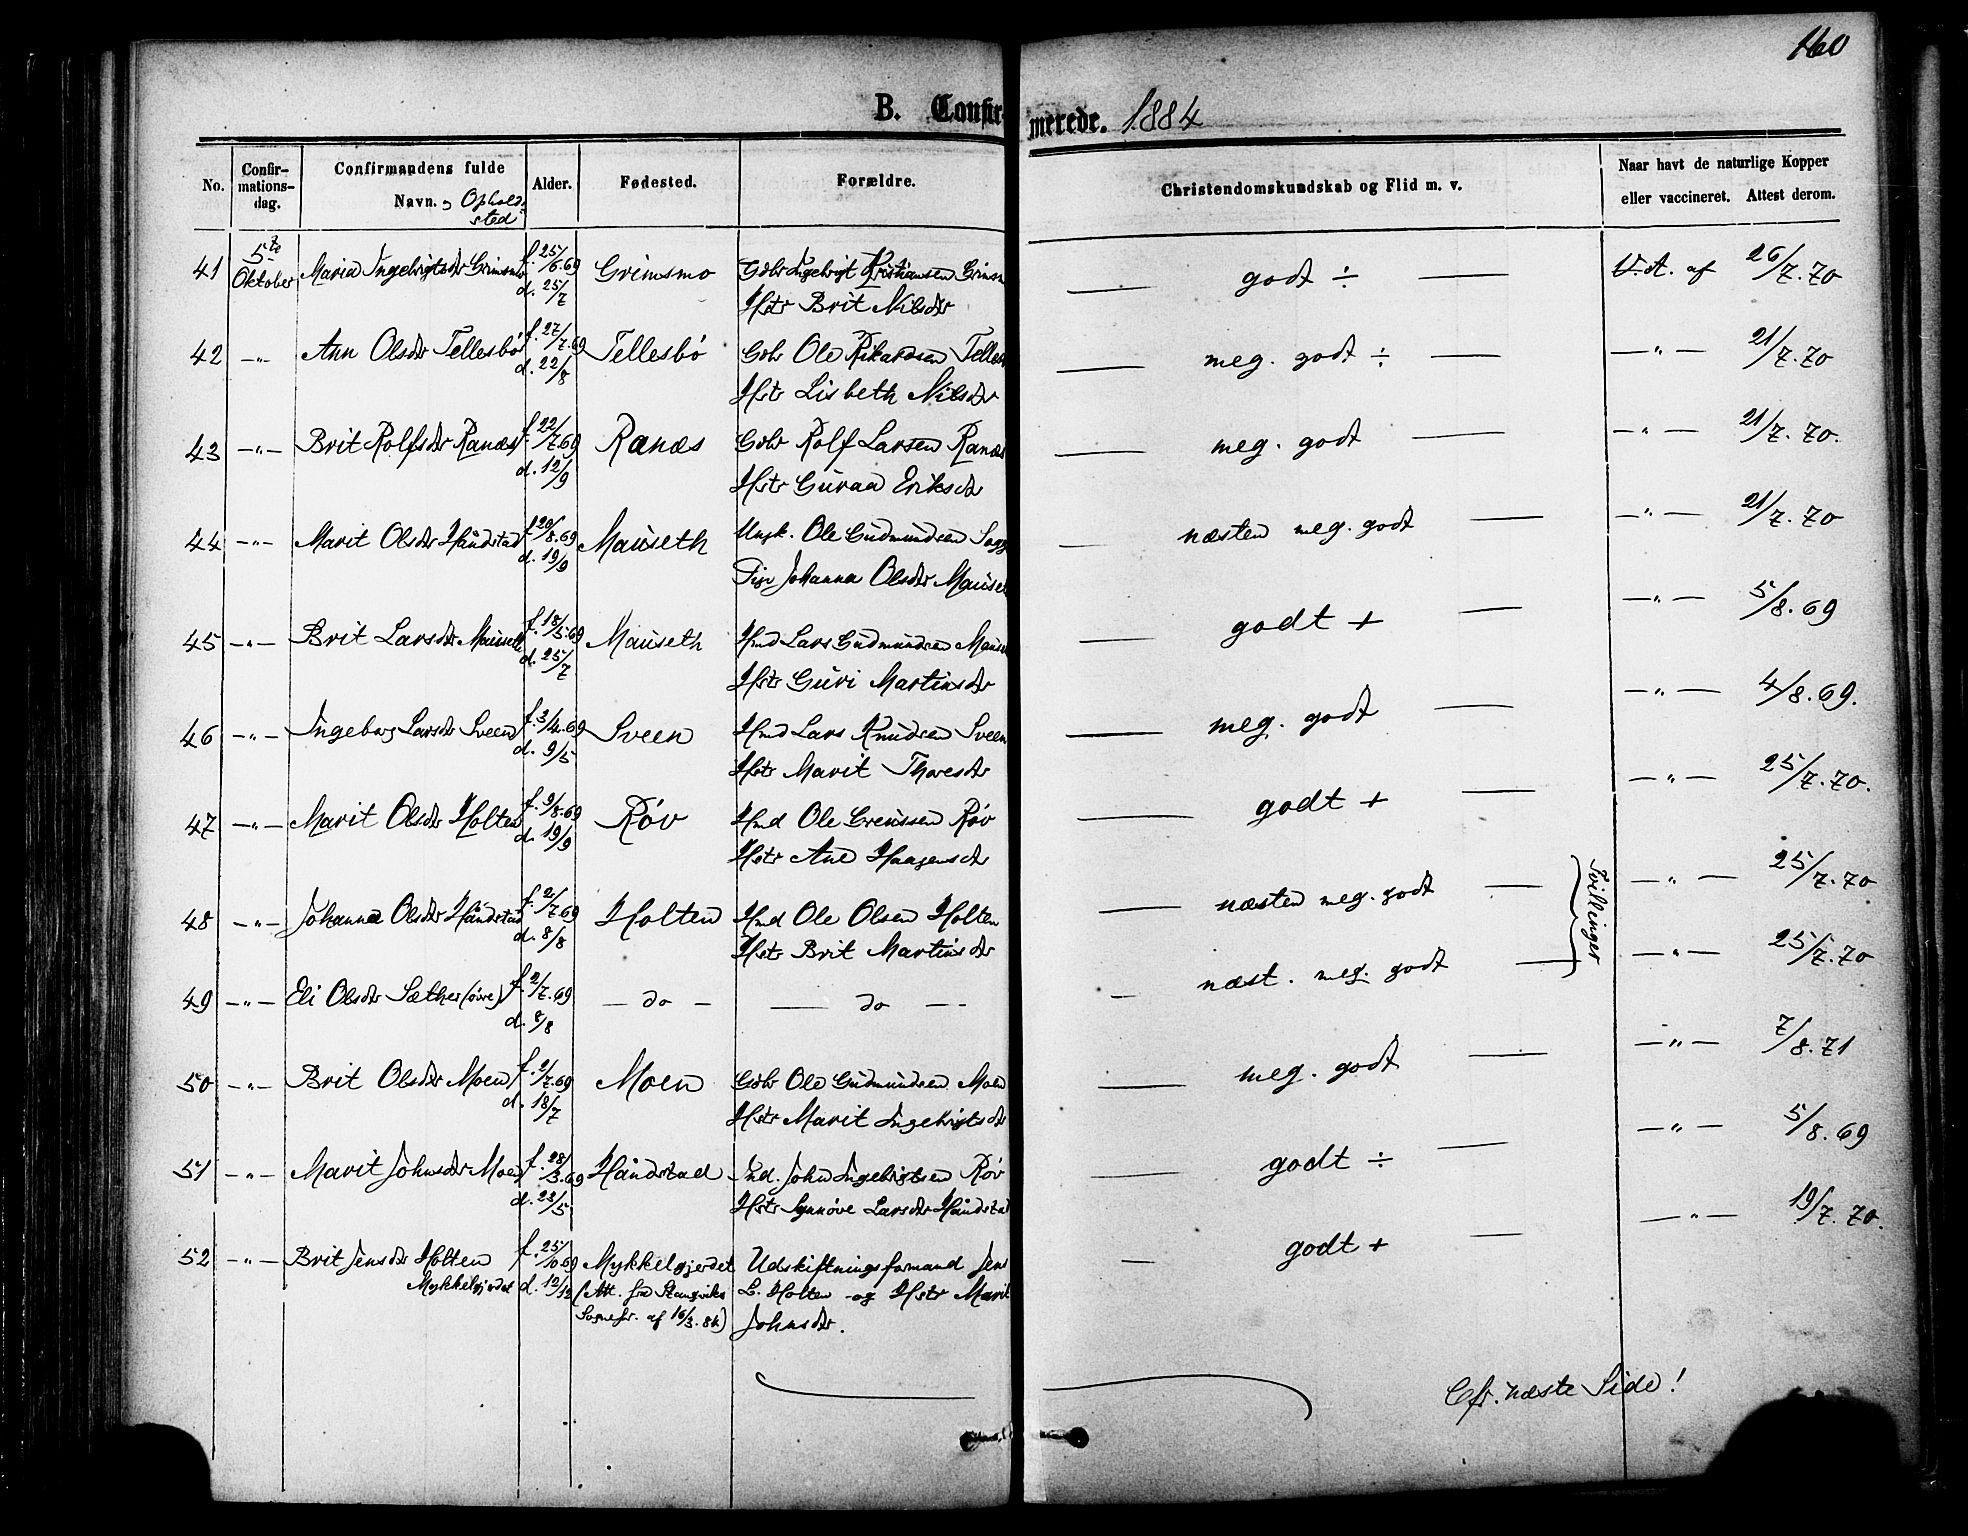 160
B. Confirmerede. 1884
No. Confirmations-dag. Confirmandens fulde Navn. og Opholdssted Alder. Fødested. Forældre. Christendomskundskab og Flid m. v. Naar havt de naturlige Kopper eller vaccineret. Attest derom.
41 5te Oktober Maria Ingebrigtsdr Grimsmo f. 25/6.69 d. 25/7 Grimsmo Gbr Ingebrigt Kristiansen Grimsm
Hstr Brit Nilsdr
godt ÷ V.A. af 26/7.70
42 —"— Ann Olsdr Tellesbø f. 27/7.69 d. 22/8 Tellesbø Gbr Ole Rikardsen Telles
Hstr Lisbeth Nilsdr
meg. godt ÷ —"— 21/7.70
43 —"— Brit Rolfsdr Ranæs f. 22/7.69 d. 12/9 Ranæs Gbr Rolf Larsen Ranæs
Hstr Guraa Eriksdr
meg. godt —"— 21/7.70.
44 —"— Marit Olsdr Håndstad f. 20/8.69 d. 19/9 Mauseth Ungk. Ole Gudmundsen Sogg
Pige Johanna Olsdr Mause
næsten meg. godt —"— 21/7.70
45 —"— Brit Larsdr Mauseth f. 18/5.69 d. 25/7 Mauseth Hmd Lars Gudmundsen Mause
Hstr Guri Martinsdr
godt + —"— 5/8.69
46 —"— Ingeborg Larsdr Sveen f. 3/4.69 d. 9/5 Sveen Hmd Lars Knudsen Sveen
Hstr Marit Thoresdr
meg. godt —"— 4/8.69.
47 —"— Marit Olsdr Holten f. 9/8.69 d. 19/9 Røv Hmd Ole Brenssen Røv
Hstr Ane Haagensdr
godt + —"— 25/7.70.
48 —"— Johanna Olsdr Håndstad f. 2/7.69 d. 8/8 Holten Hmd Ole Olsen Holten
Hstr Brit Martinsdr
næsten meg. godt —"— 25/7.70
Tvillinger
49 —"— Eli Olsdr Sæther (øvre) f. 2/7.69 d. 8/8 — do — — do —
næst. meg. godt —"— 25/7.70
50 —"— Brit Olsdr Moen f. 2/7.69 d. 18/7 Moen Gbr Ole Gudmundsen Moen
Hstr Marit Ingebrigtsdr
meg. godt —"— 7/8.71
51 —"— Marit Johnsdr Moen f. 28/3.69 d. 23/5 Håndstad Ind. John Ingebrigtsen Røv
Hstr Synnøve Larsdr Håndstad
godt ÷ —"— 5/8.69
52 —"— Brit Jensdr Holten f. 25/10.69 Mykkelgjerdet Udskiftningsformand Jens
Mykkelgjerdet d. 12/12 (Att. fra Stangviks L. Holten og Hstr Marit
Sognepr. af 16/3.84) Johnsdr.
godt + —"— 19/7.70.
Cfr. næste Side!